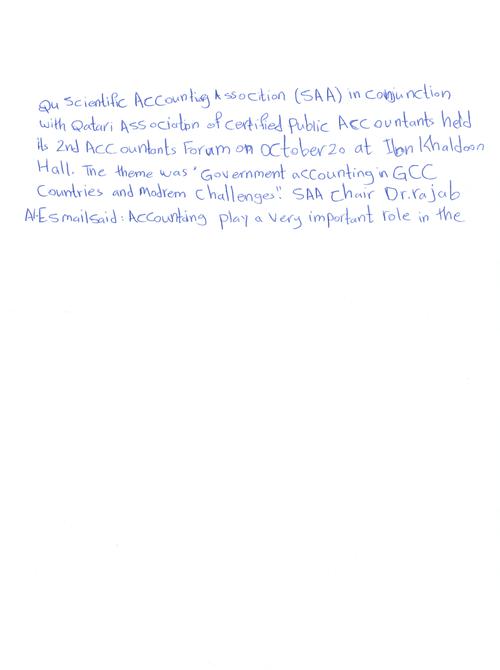 Qu Scientific Accounting Assocition (SAA) in conjunction
with Qatari Association of certified Public Accountants held
its 2nd Accountants Forum on October 20 at Ibn Khaldoon
Hall. The theme was "Government accounting in GCC
Countries and Modrem Challenges". SAA Chair Dr. rajab
Al-Esmail said: Accounting play a very important role in the